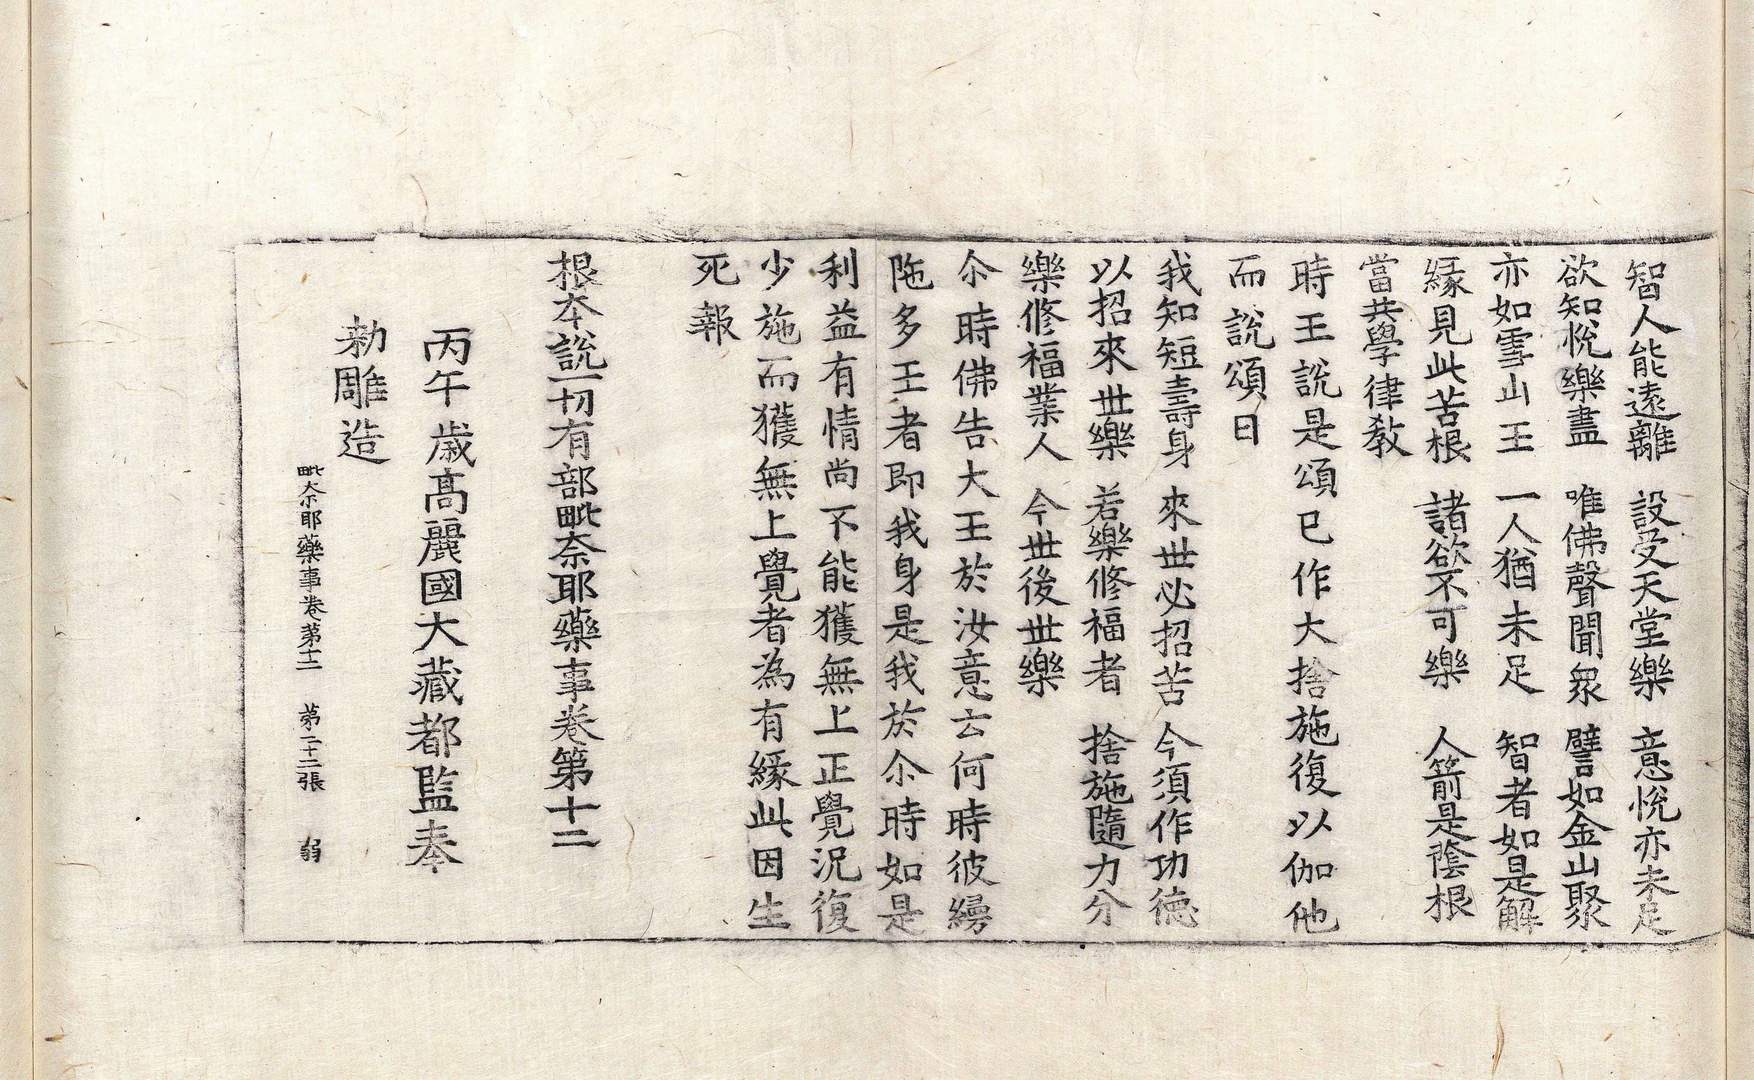 智人能遠離　設受天堂樂　意悅亦未足
欲知悅樂盡　唯佛聲聞衆　譬如金山聚
亦如雪山王　一人猶未足　智者如是解
緣見此苦根　諸欲不可樂　人箭是蔭根
當共學律教
時王說是頌已作大捨施復以伽他
而說頌曰
我知短壽身　來世必招苦　今須作功德
以招來世樂　若樂修福者　捨施隨力分
樂修福業人　今世後世樂
尒時佛告大王於汝意云何時彼縵
陁多王者即我身是我於尒時如是
利益有情尚不能獲無上正覺況復
少施而獲無上覺者為有緣此因生
死報
根本說一切有部毗奈耶藥事卷第十二
丙午歲高麗國大藏都監奉
勅雕造
毗奈耶藥事卷第十二　第二十二張　弱